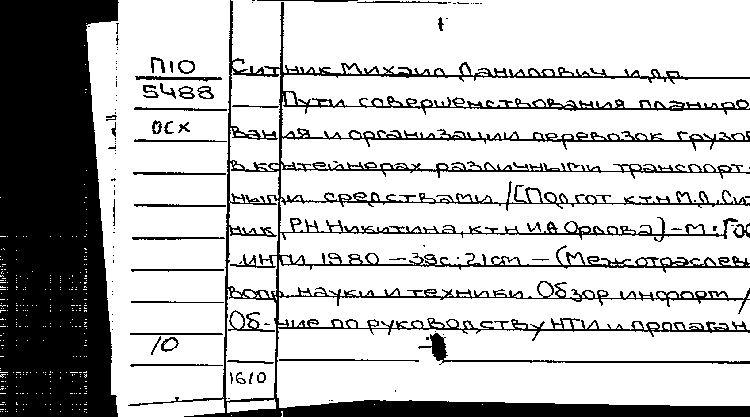 П10
5488
ОСХ
Ситник Михаил Данилович и др.
Пути совершенствования планиро
вания и организации перевозок грузов
в контейнерах различными транспорт-
ными средствами /[Подгот. к.т.н М.Д. Сит
ник, Р.Н. Никитина, к.т.н И.А Орлова]-М: Гос
ИНТИ, 1980 - 39с; 21 cm - (Межотраслев
вопр. науки и техники. Обзор. информ /
Об-ние по руководству НТИ и пропаган
10
1610